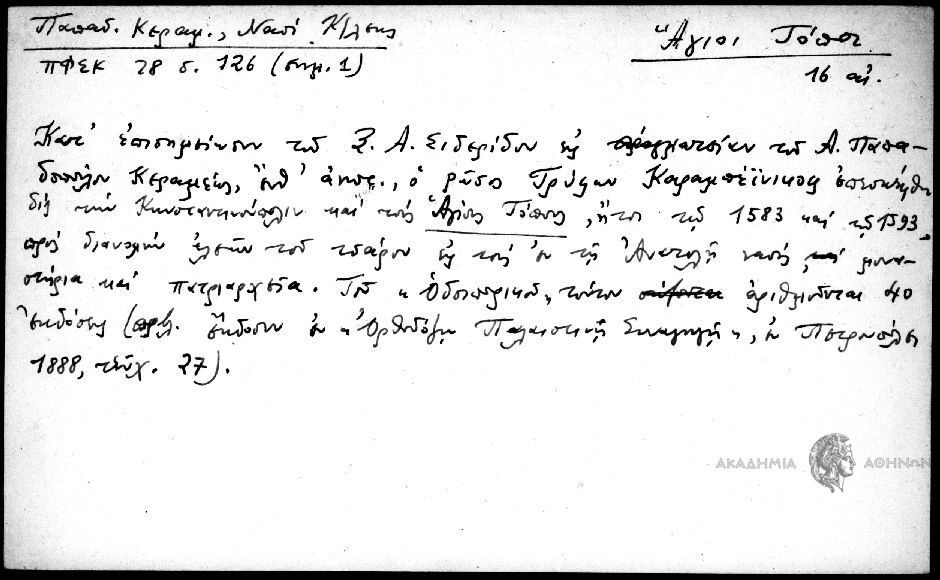 Παπαδ. Κεραμ., Ναοί Κ/λεως
ΠΦΣΚ 28 σ. 126 (σημ. 1)
Ἅγιοι Τόποι
16 αἰ.
Κατ' ἐπισημείωσιν τοῦ Ξ. Α. Σιδερίδου εἰς πραγματείαν τοῦ Α. Παπα-
δοπούλου Κεραμέως, ἔνθ' ἀνωτ., ὁ ρῶσος Τρύφων Καραμπέϊνικωφ ἐπεσκέφθη
δὶς τὴν Κωνσταντινούπολιν καὶ τοὺς Ἁγίους Τόπους, ἤτοι τῷ 1583 καὶ τῷ 1593,
πρὸς διανομὴν ἐλεῶν τοῦ τσάρου εἰς τοὺς ἐν τῇ Ἀνατολῇ ναούς, καὶ μονα-
στήρια καὶ πατριαρχεῖα. Τοῦ "Ὁδοιπορικοῦ" τούτου σώζονται ἀριθμοῦνται 40
ἐκδόσεις (πρβλ. ἔκδοσιν ἐν "Ὀρθοδόξῳ Παλαιστινῆς Συναγωγῇ", ἐν Πετρουπόλει
1888, τεῦχ. 27).
ΑΚΑΔΗΜΙΑ ΑΘΗΝΩΝ